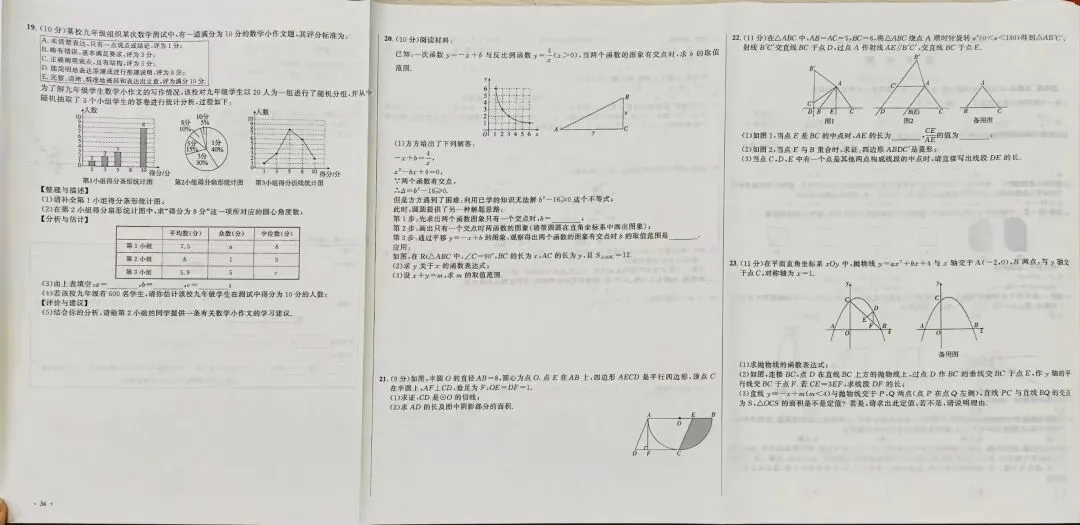 19. (10分)某校九年级组织某次数学测试中,有一道满分为10分的数学小作文题,其评分标准为:
A. 未清楚表达,只有一点观点或结论,评为1分;
B. 略有错误,基本满足要求,评为3分;
C. 正确阐明观点,且有结构,评为5分;
D. 能简明地表达原理或进行推理说明,评为8分;
E. 完整、清晰、精准地概括和表达出立意,评为满分10分.
为了解九年级学生数学小作文的写作情况,该校对九年级学生以20人为一组进行了随机分组,并从中
随机抽取了3个小组学生的答卷进行统计分析,过程如下:
人数
10
9
8
7
6
5
4
3
2
1
0
1
2
3
8
1 3 5 8 10 得分/分
第1小组得分条形统计图
10分
5%
8分
10%
5分
15%
3分
30%
1分
40%
第2小组得分扇形统计图
人数
10
9
8
7
6
5
4
3
2
1
0
1 3 5 8 10 得分/分
第3小组得分折线统计图
【整理与描述】
(1)请补全第1小组得分条形统计图;
(2)在第2小组得分扇形统计图中,求“得分为8分”这一项所对应的圆心角度数;
【分析与估计】
平均数(分) 众数(分) 中位数(分)
第1小组 7.5 a 8
第2小组 b 1 3
第3小组 5.9 5 c
(3)由上表填空:a=______,b=______,c=______;
(4)若该校九年级有600名学生,请你估计该校九年级学生在测试中得分为10分的人数;
【评价与建议】
(5)结合你的分析,请给第2小组的同学提供一条有关数学小作文的学习建议.
· 36 ·
20. (10分)阅读材料:
已知:一次函数y=-x+b与反比例函数y=4/x(x>0),当两个函数的图象有交点时,求b的取值
范围.
y
6
5
4
3
2
1
O 1 2 3 4 5 6 x
B
x
A y C
(1)方方给出了下列解答:
-x+b=4/x,
x²-bx+4=0,
∵两个函数有交点,
∴Δ=b²-16≥0.
但是方方遇到了困难:利用已学的知识无法解b²-16≥0这个不等式;
此时,圆圆提供了另一种解题思路:
第1步:先求出两个函数图象只有一个交点时,b=______;
第2步:画出只有一个交点时两函数的图象(请帮圆圆在直角坐标系中画出图象);
第3步:通过平移y=-x+b的图象,观察得出两个函数的图象有交点时b的取值范围是______.
应用:
如图,在Rt△ABC中,∠C=90°,BC的长为x,AC的长为y,且S△ABC=12.
(2)求y关于x的函数表达式;
(3)设x+y=m,求m的取值范围.
21. (9分)如图,半圆O的直径AB=8,圆心为点O.点E在AB上,四边形AECD是平行四边形,顶点C
在半圆上,AF⊥CD,垂足为F,OE=DF=1.
(1)求证:CD是⊙O的切线;
(2)求AD的长及图中阴影部分的面积.
A O E B
D F C
22. (11分)在△ABC中,AB=AC=5,BC=6,将△ABC绕点A顺时针旋转α°(0<α<180)得到△AB′C′,
射线B′C′交直线BC于点D,过点A作射线AE∥B′C′,交直线BC于点E.
B′
A
C′
D B E C
图1
B′
C′ A
D B(E) C
图2
A
B C
备用图
(1)如图1,当点E是BC的中点时,AE的长为______,CE/AE的值为______;
(2)如图2,当点E与B重合时,求证:四边形ABDC′是菱形;
(3)当点C、D、E中有一个点是其他两点构成线段的中点时,请直接写出线段DE的长.
23. (11分)在平面直角坐标系xOy中,抛物线y=ax²+bx+4与x轴交于A(-2,0),B两点,与y轴交
于点C,对称轴为x=1.
y
C
D
E
F
A O B x
y
C
A O B x
备用图
(1)求抛物线的函数表达式;
(2)如图,连接BC,点D在直线BC上方的抛物线上,过点D作BC的垂线交BC于点E,作y轴的平
行线交BC于点F.若CE=3EF,求线段DF的长;
(3)直线y=-x+m(m<4)与抛物线交于P,Q两点(点P在点Q左侧),直线PC与直线BQ的交点
为S,△OCS的面积是不是定值?若是,请求出此定值,若不是,请说明理由.